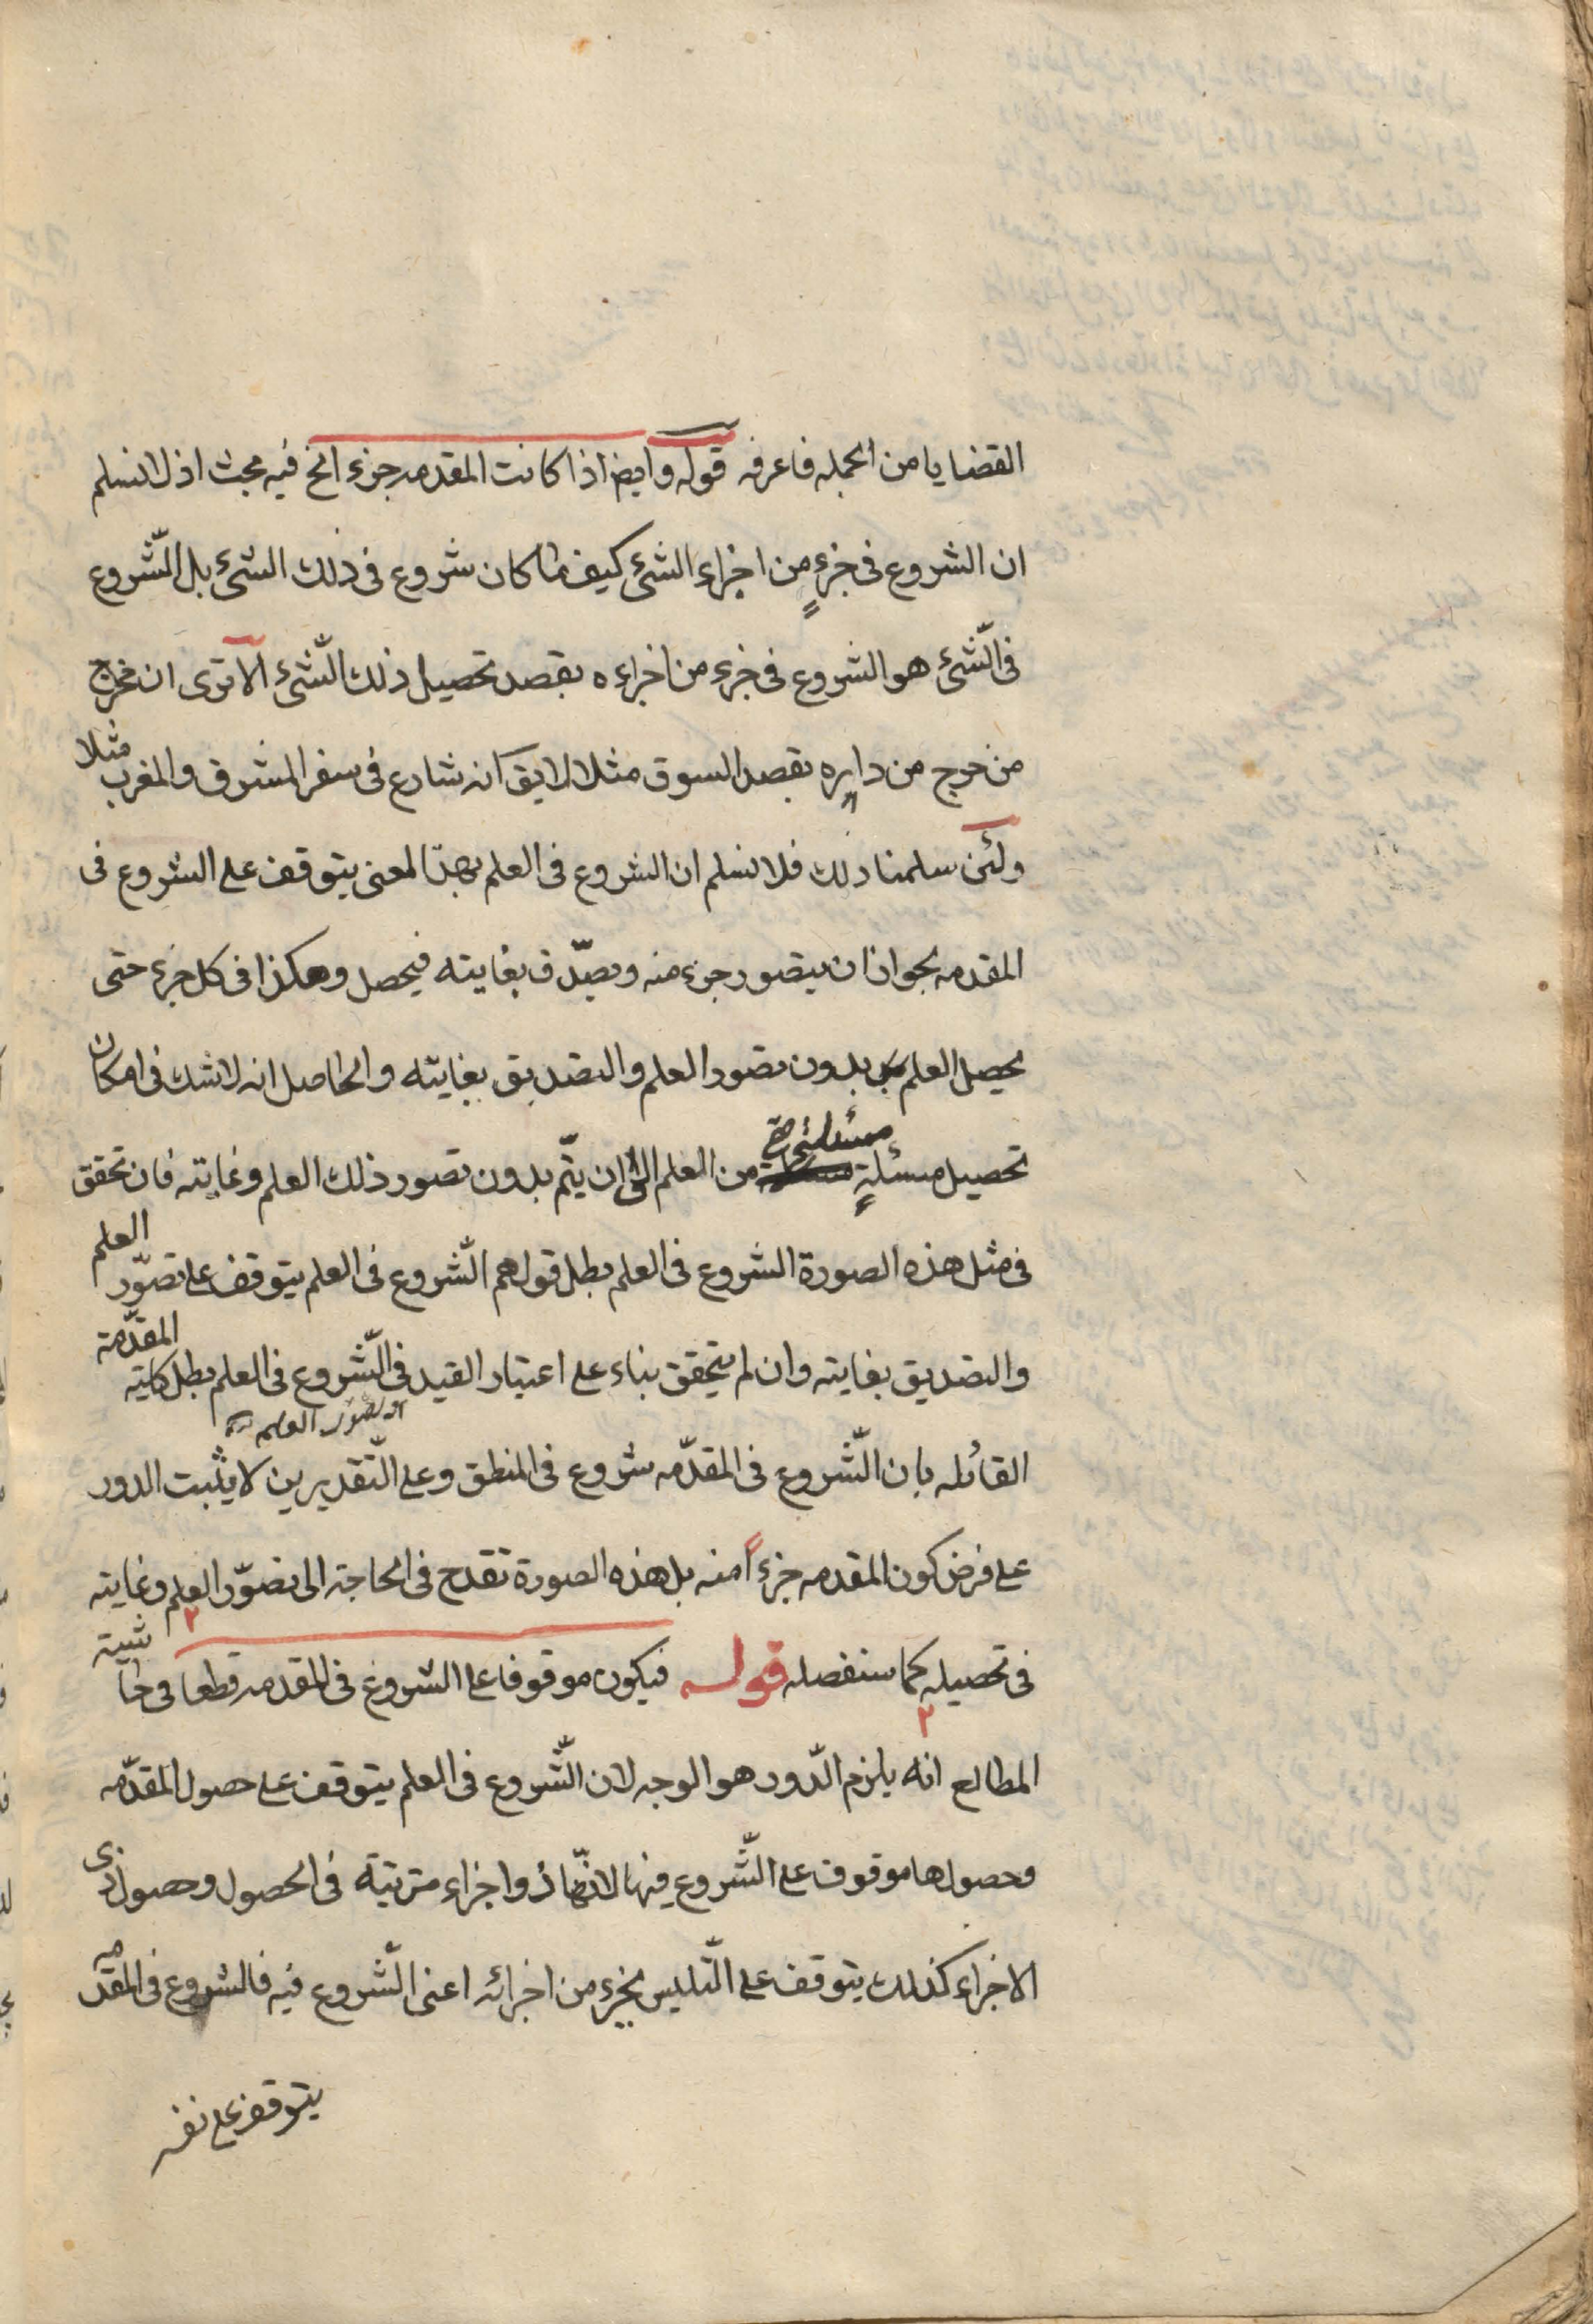 القضايا من الجمله فاعرفه قوله وايض اذا كانت المقدمه جزء الخ فيه بحث اذ لا نسلم
ان الشروع فى جزءٍ من اجزاء الشئ كيف ما كان شروع فى ذلك الشئ بل الشّروع
فى الشّئ هو الشروع فى جزء من اجزاءه بقصد تحصيل ذلك الشّئ الا ترى ان مخرج
من خرج من داره بقصد السوق مثلا لا يق انه شارع فى سفر المشرق والمغرب مثلا
ولئن سلمنا ذلك فلا نسلم ان الشروع فى العلم بهذا المعنى يتوقف على الشروع فى
المقدمه بجواز ان يتصور جزء منه ويصدّق بغايته فيحصل وهكذا فى كل جزء حتى
يحصل العلم بدون تصور العلم والتصديق بغايته والحاصل انه لا شك فى امكان
تحصيل مسئلةٍ مسئلة من العلم الى ان يتّم بدون تصور ذلك العلم وغايته فان تحقق
فى مثل هذه الصورة الشروع فى العلم بطل قولهم الشّروع فى العلم يتوقف على تصوّر العلم
والتصديق بغايته وان لم يتحقق بناء على اعتبار القيد فى الشّروع فى العلم بطل كلية المقدّمة
القائله بان الشّروع فى المقدّمه شروع فى المنطق وعلى التّقديرين لا يثبت الدور
او تصور العلم
على فرض كون المقدمه جزءاً منه بل هذه الصورة تقدح فى الحاجة الى تصوّر العلم وغايته
فى تحصيله كما سنفصله قوله فيكون موقوفا على الشروع فى المقدمه قطعا فى حاشية
المطالع انه يلزم الدّور هو الوجه لان الشّروع فى العلم يتوقف على حصول المقدّمه
وحصولها موقوف على الشّروع فيها لانّها ذو اجزاء مترتبة فى الحصول وحصول ذى
الاجزاء كذلك يتوقف على التّلبس بجزء من اجزائه اعنى الشّروع فيه فالشروع فى المقدّمه
يتوقف على نفسه